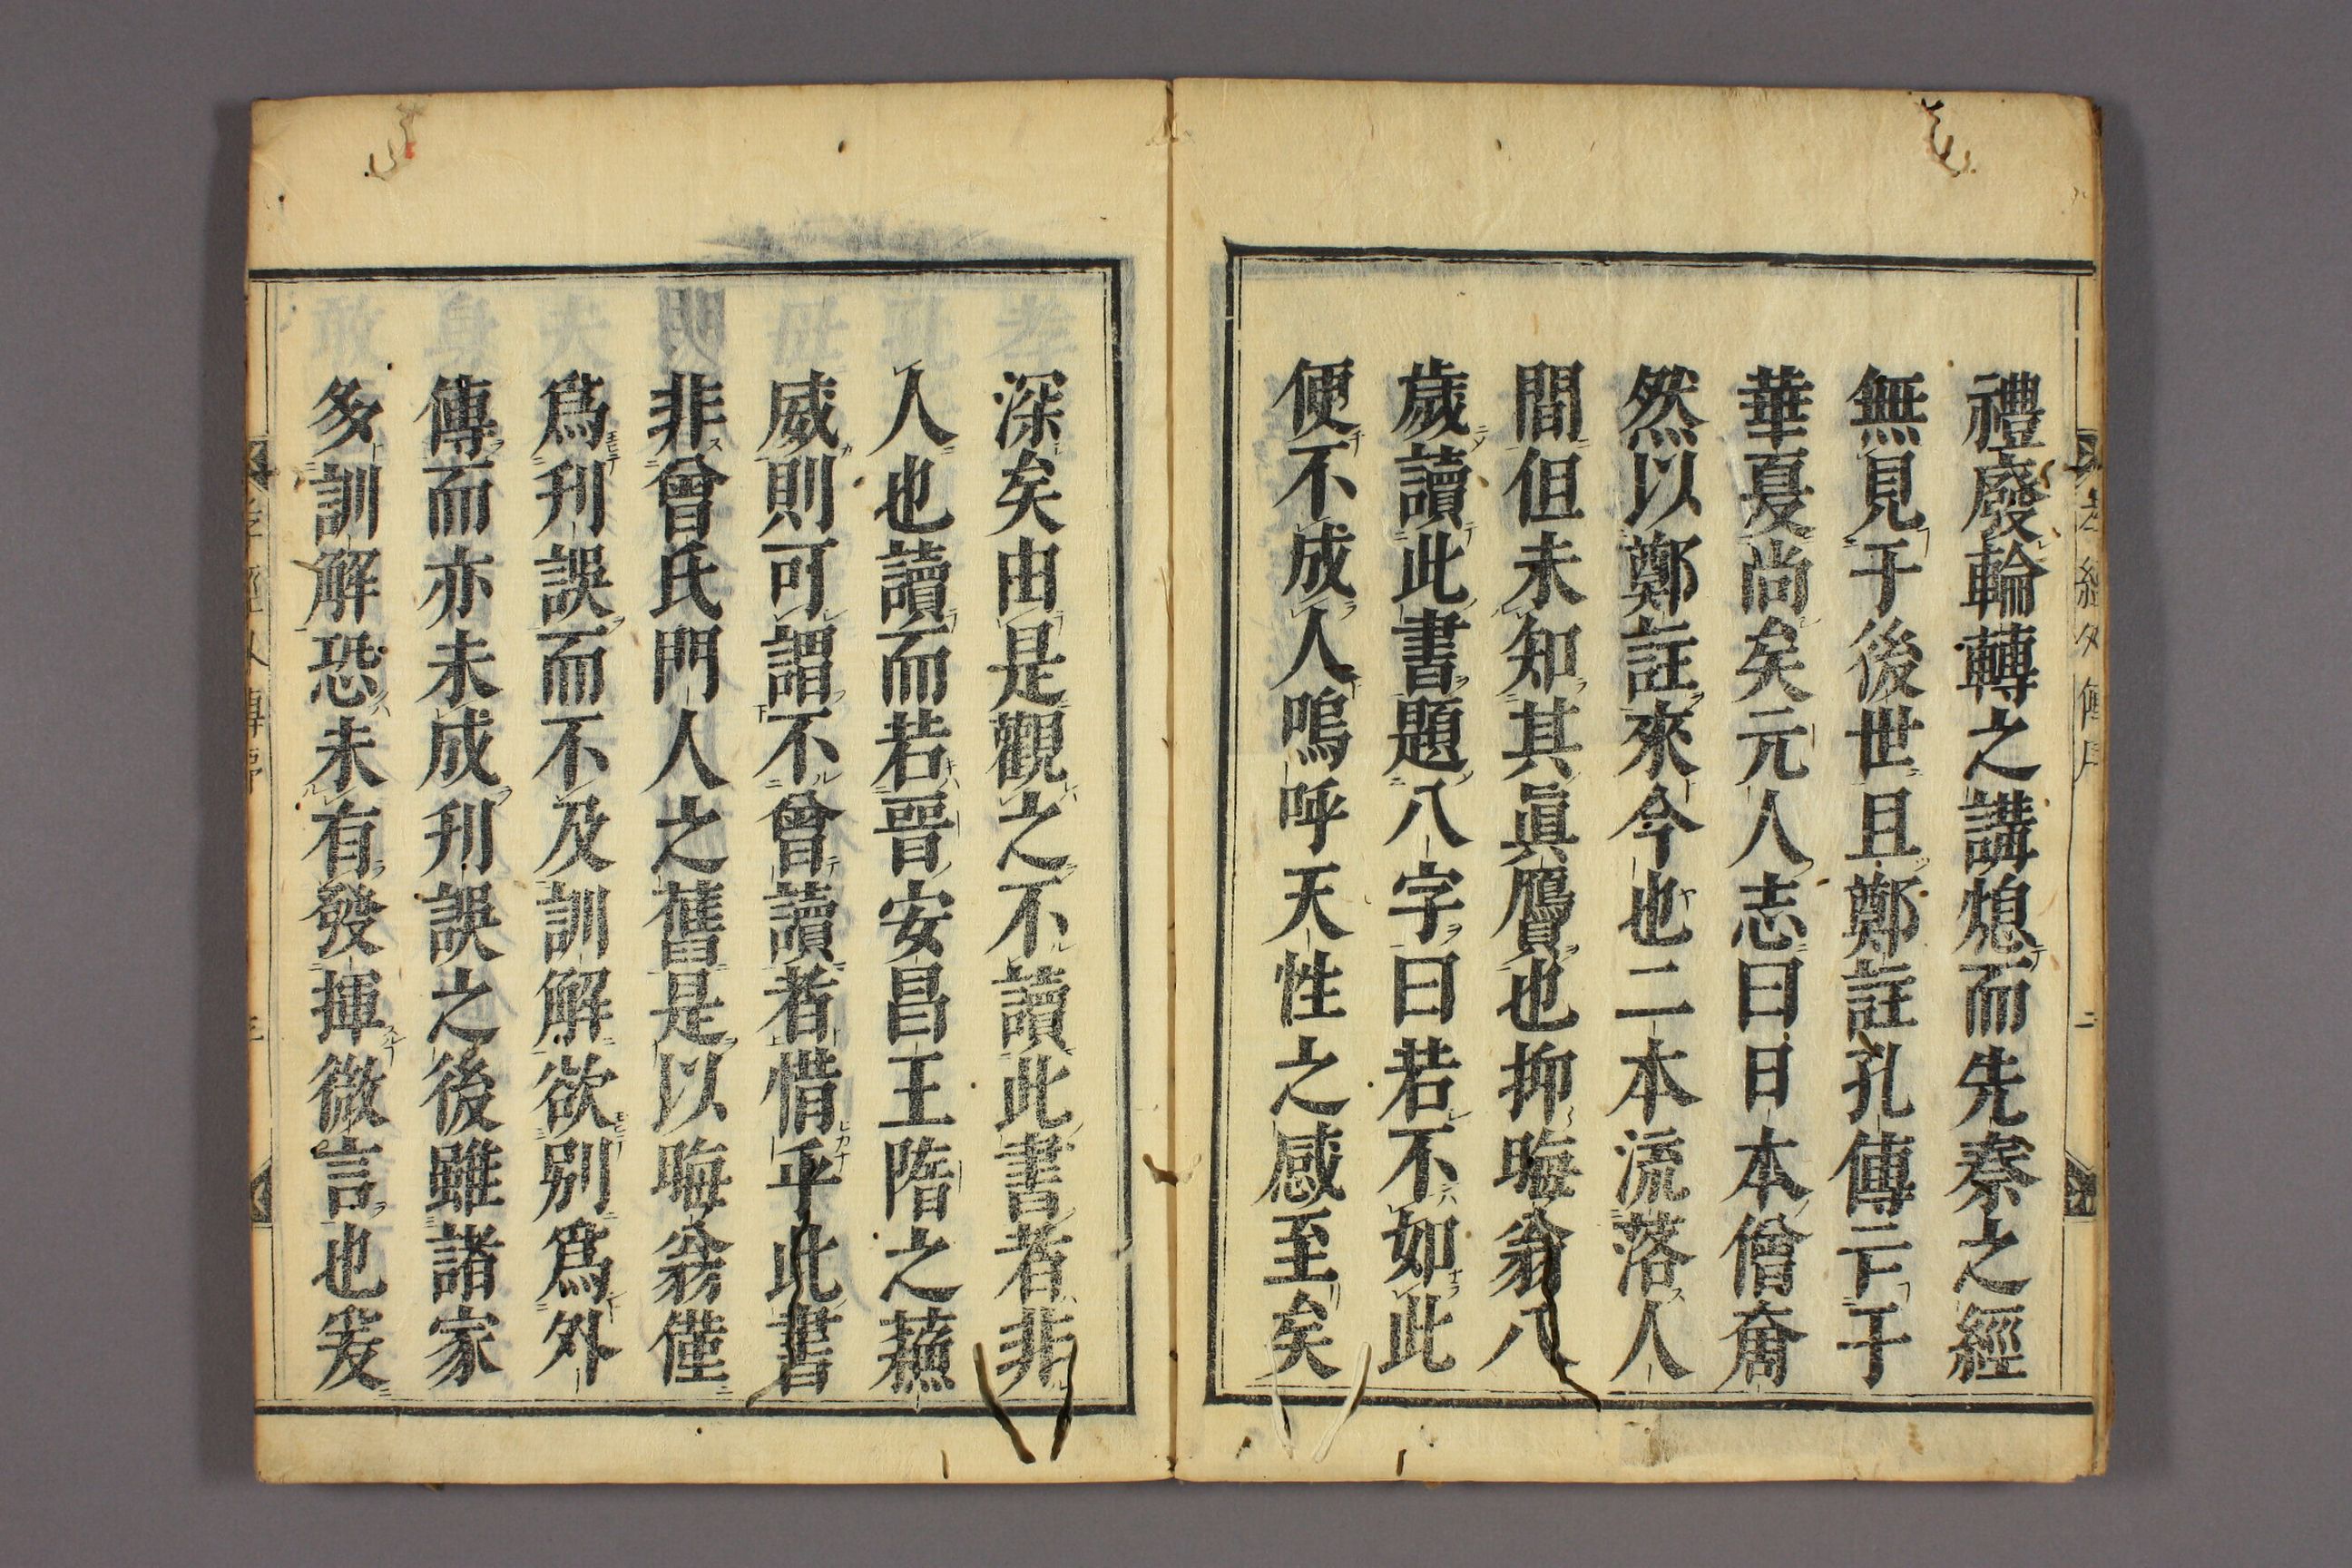 禮廢輪轉之講熄而先秦之經
無見于後世且鄭註孔傳亡于
華夏尚矣元人志曰日本僧奝
然以鄭註來今也二本流落人
間但未知其眞贋也抑晦翁八
歲讀此書題八字曰若不如此
便不成人嗚呼天性之感至矣
深矣由是觀之不讀此書者非
人也讀而若晉安昌王隋之蘇
威則可謂不曾讀者惜乎此書
非曾氏門人之舊是以晦翁僅
爲刋誤而不及訓解欲別爲外
傳而亦未成刋誤之後雖諸家
多訓解恐未有發揮微言也爰